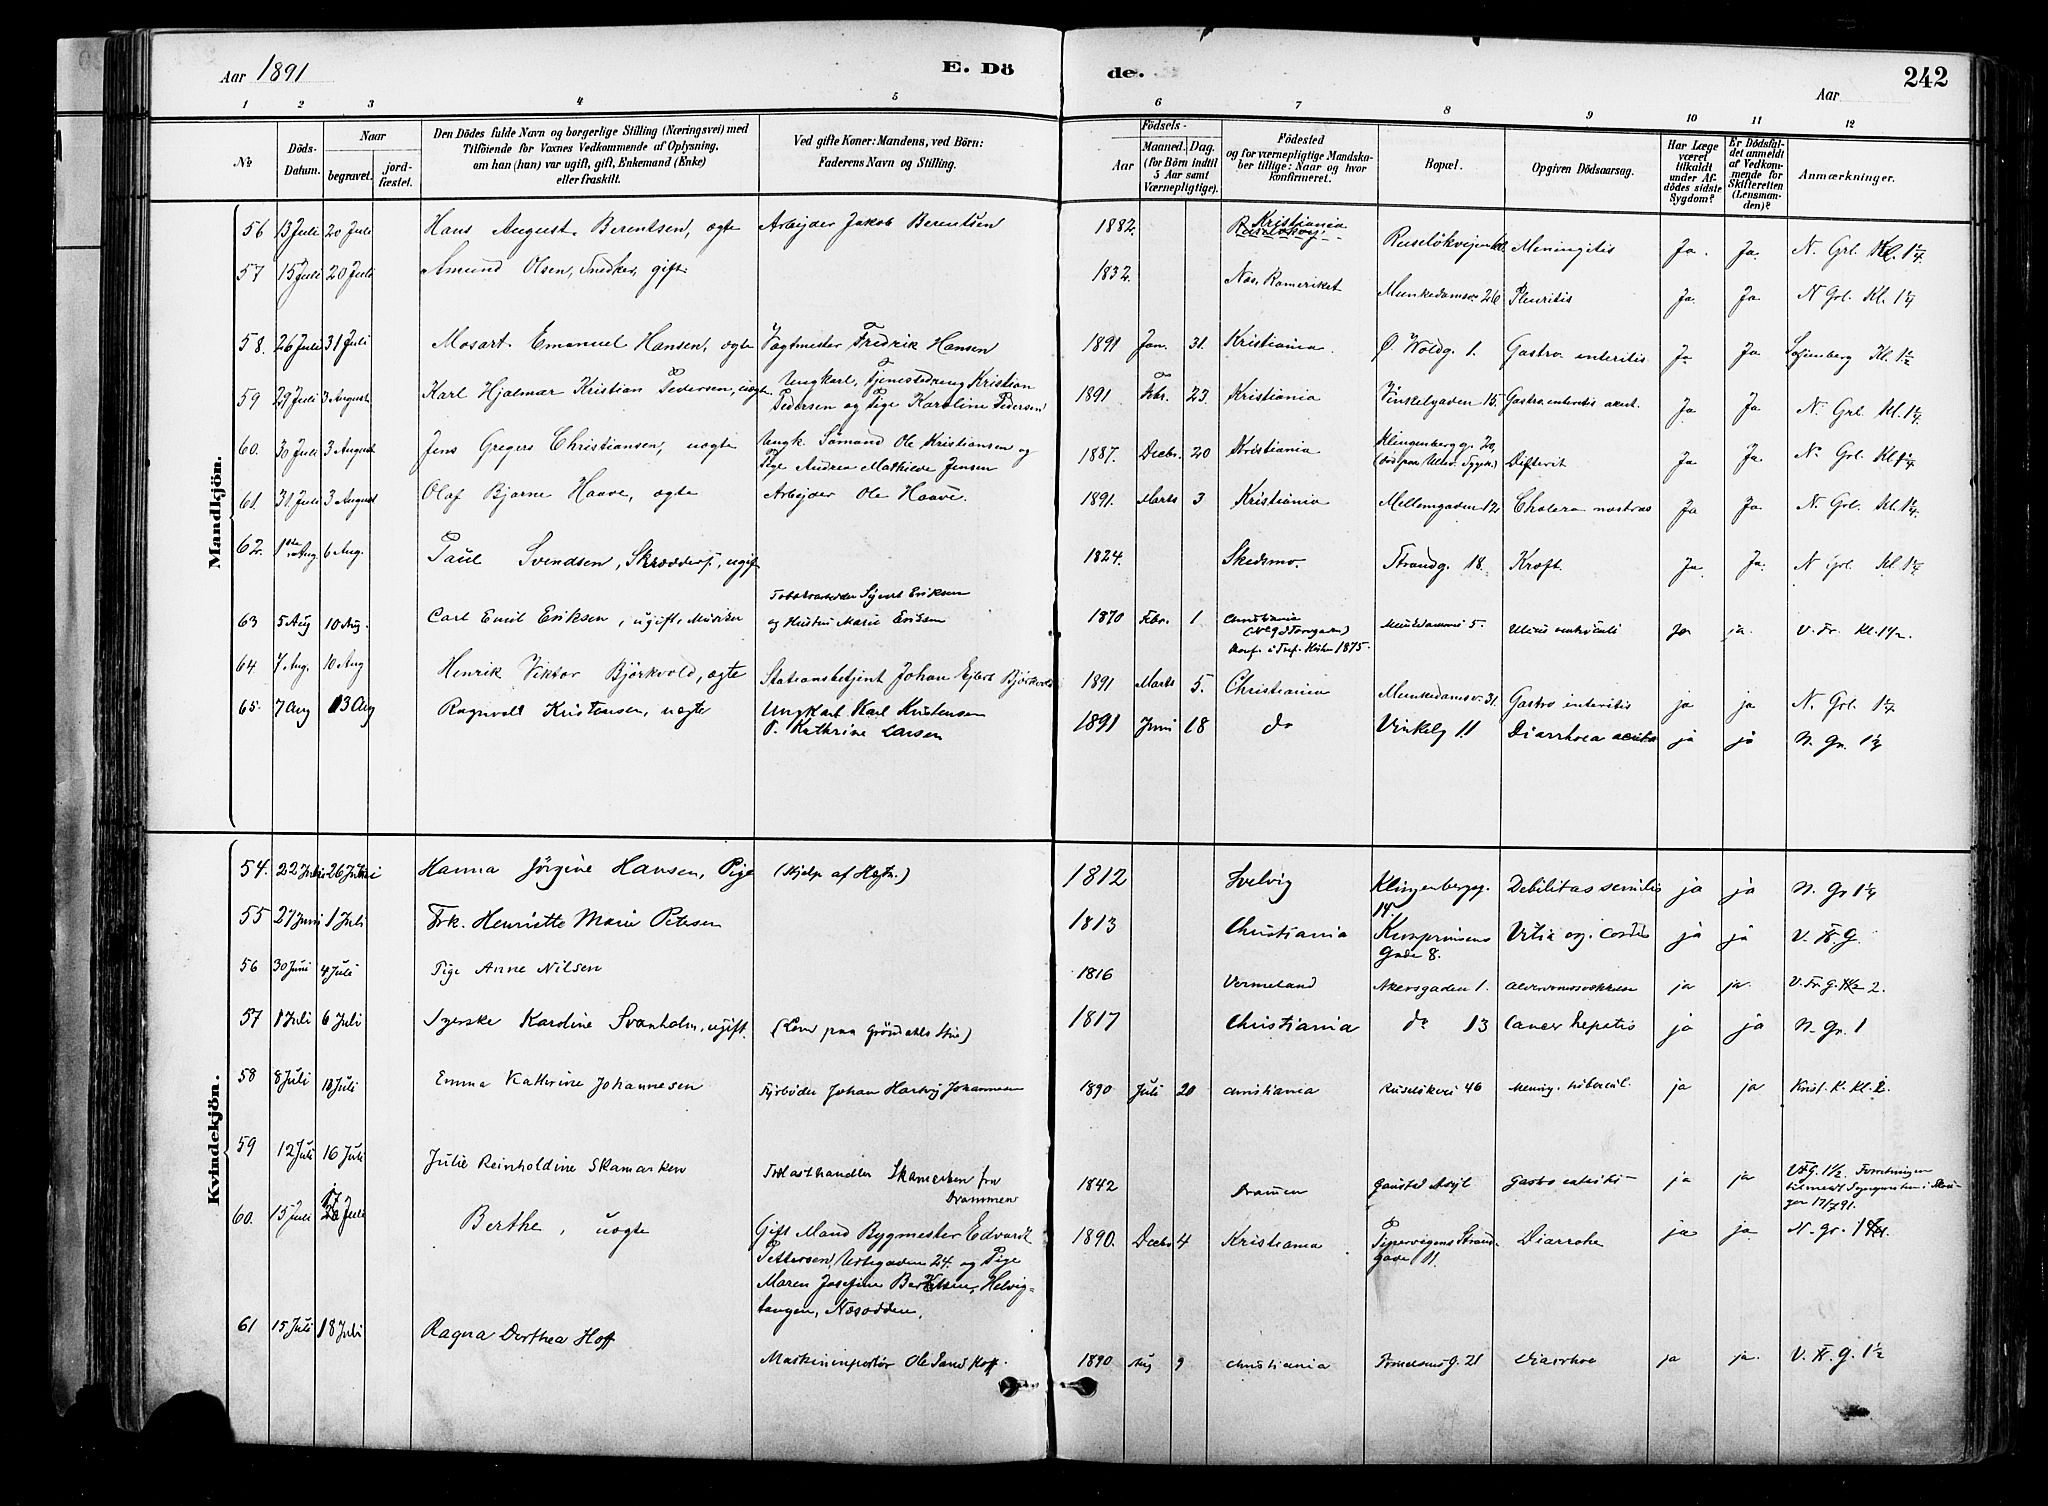 Aar 1891
E. Dö
de.
242
Aar
1 2 3 4 5 6 7 8 9 10 11 12
No
Döds-Datum.
Naar
begravet.
jord-fæstet.
Den Dödes fulde Navn og borgerlige Stilling (Næringsvei) med
Tilföiende for Voxnes Vedkommende af Oplysning,
om han (hun) var ugift, gift, Enkemand (Enke)
eller fraskilt.
Ved gifte Koner: Mandens, ved Börn:
Faderens Navn og Stilling.
Födsels-
Aar
Maaned. Dag.
(for Börn indtil
5 Aar samt
Værnepligtige).
Födested
og for værnepligtige Mandska-
ber tillige: Naar og hvor
konfirmeret.
Bopæl.
Opgiven Dödsaarsag.
Har Læge
været
tilkaldt
under Af-
dödes sidste
Sygdom?
Er Dödsfal-
det anmeldt
af Vedkom-
mende for
Skifteretten
(Lensman-
den)?
Anmærkninger.
Mandkjön.
56 13 Juli 20 Juli Hans August Berentsen, ægte Arbejder Jakob Berentsen 1882. Kristiania Ruselökvejen Meningitis Ja. Ja. N. Grl. Kl. 1¼
57 15 Juli 20 Juli Amund Olsen, Snedker, gift 1832. Nes, Romeriket Munkedamsv. 26 Pleuritis Ja Ja N Grl. Kl. 1¼
58. 26 Juli 31 Juli Mosart Emanuel Hansen, ægte Vagtmester Fredrik Hansen 1891 Jan. 31. Kristiania. Ø Voldg. 1. Gastro enteritis Ja Ja Sofienberg Kl. 1½
59 29 Juli 3 August Karl Hjalmar Kristian Pedersen, uægte Ungkarl, Tjenestedreng Kristian
Pedersen og Pige Karoline Pedersen 1891 Febr. 23. Kristiania Vinkelgaden 15. Gastro enteritis acut. Ja Ja N. Grl. Kl. 1¼
60. 30 Juli 3 August Jens Gregers Christiansen, uægte Ungk. Sömand Ole Kristiansen og
Pige Andrea Mathilde Jensen 1887. Decbr. 20 Kristiania Klingenbergg. 20, Difterit Ja Ja. N. Grl. Kl 1¼
61. 31 Juli 3 August Olaf Bjarne Haave, ægte Arbejder Ole Haave. 1891. Marts 3 Kristiania Mellemgaden 12 Cholera nostras Ja Ja. N. Grl. Kl. 1¼
62. 1 Aug. 6 Aug. Paul Svendsen, Skrædders., ugift 1824. Skedsmo. Strandg. 18. Kræft. Ja. Ja. N Grl. Kl 1¼
63 5 Aug 10 Aug. Carl Emil Eriksen, ugift, Musiker Sivert Eriksen
og Hustru Marie Eriksen 1870 Febr. 1 Christiania Munkdamsv 5. Ulcus ventriculi Ja ja. V. Fr. Kl. 1½.
64. 7 Aug. 10 Aug Henrik Viktor Björkvold, ægte Stationsbetjent Johan Ejlert Björkvold 1891 Marts 5. Christiania Munkedamsv. 31. Gastro enteritis ja ja N. Grl. 1¼
65. 7 Aug 13 Aug Ragnvald Kristensen, uægte Ungkarl Karl Kristensen
P. Kathrine Larsen 1891 Juni 18 do Vinkelg 11 Diarrhoea acuta ja ja N. Gr. 1¼
Kvindekjön.
54. 22 26 Hanna Jörgine Hansen, Pige (Hjelp af Hegtn.) 1812 Svelvig Klingenbergg.
14 Debilitas senilis ja ja N. Gr 1¼
55 27 Juni 1 Juli Frk. Henriette Marie Petersen 1813 Christiania Kronprinsens
Gade 8. Vitia og. cordis ja ja V. Fr. G.
56 30 Juni 4 Juli Pige Anne Nilsen 1816 Vermeland Akersgaden 1. Alderdomssvækkelse ja ja. V. Fr. G. 2.
57 1 Juli 6 Juli Syerske Karoline Svanholm, ugift. (Lem paa Gröndahls Stue) 1817 Christiania do 13 Cancer hepatis ja ja N. Gr. 1
58 8 Juli 13 Juli Emma Kathrine Johannesen Fyrböder Johan Hartvig Johannesen 1890 Juli 20 Christiania Ruselökvei 46 Mening. tubercul. ja ja Krist. K. Kl. 2.
59 12 Juli 16 Juli Julie Reinholdine Skamarken Trælasthandler Skamarken fra
Drammen 1842 Drammen Gaustad Asyl Gastro enteritis ja ja V.Fr.G. 1½. Forretningen
17/7 91.
60. 15 Juli 20 Juli Berthe, uægte Gift Mand Bygmester Edvardt
Pettersen, Urtegaden 24. og Pige
Maren Josefine Berthelsen, Helvig-
tangen, Næsodden. 1890. Decbr 4 Kristiania Pipervigens Strand-
gade 11. Diarrohe ja ja N. Gr. 1
61 15 Juli 18 Juli Ragna Dorthea Hoff
Maskininspektör Ole Sand Hoff. 1890 Aug 9 Christiania 21 Diarrhoe ja ja. V. Fr. G. 1½